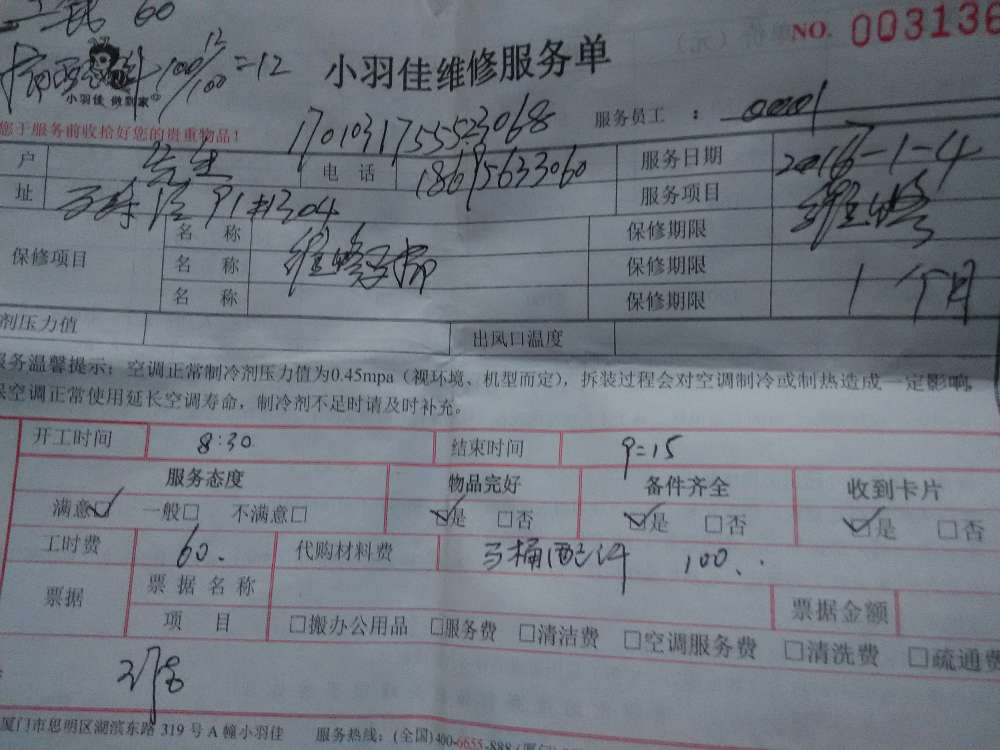 工钱 60
NO. 003136
100/100 12 =12
小羽佳维修服务单
小羽佳 做到家
您于服务前收拾好您的贵重物品!
17010317555523068
服务员工 : 0001
户 电 话 18695633060 服务日期 2016-1-4
址 91#1304 服务项目 维修
保修项目 名 称 维修马桶 保修期限
名 称 保修期限
名 称 保修期限 1个月
剂压力值 出风口温度
服务温馨提示:空调正常制冷剂压力值为0.45mpa(视环境、机型而定),拆装过程会对空调制冷或制热造成一定影响,
保空调正常使用延长空调寿命,制冷剂不足时请及时补充。
开工时间 8:30 结束时间 9=15
服务态度 物品完好 备件齐全 收到卡片
满意☑ 一般□ 不满意□ ☑是 □否 ☑是 □否 ☑是 □否
工时费 60. 代购材料费 马桶配件 100..
票据 票据名称 票据金额
项 目 □搬办公用品 □服务费 □清洁费 □空调服务费 □清洗费 □疏通费
厦门市思明区湖滨东路 319 号 A 幢小羽佳 服务热线:(全国)400-6655-888(厦门